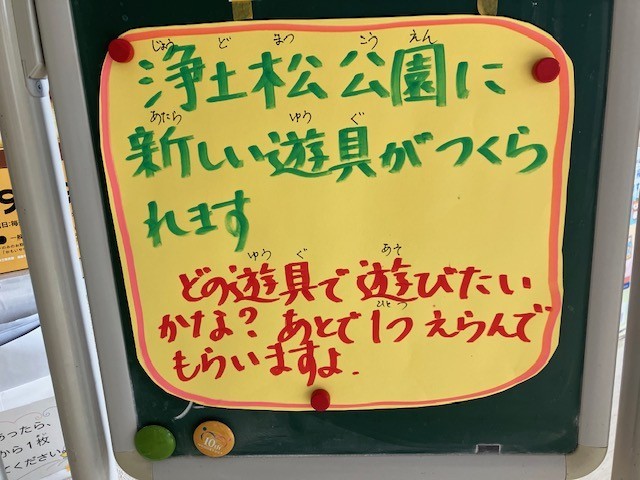 じょう ど まつ こう えん
浄土松公園に
あたら ゆう ぐ
新しい遊具がつくら
れます
ゆう ぐ あそ
どの遊具で遊びたい
ひとつ
かな? あとで1つ えらんで
もらいますよ.
10
あったら、
から1枚
てください